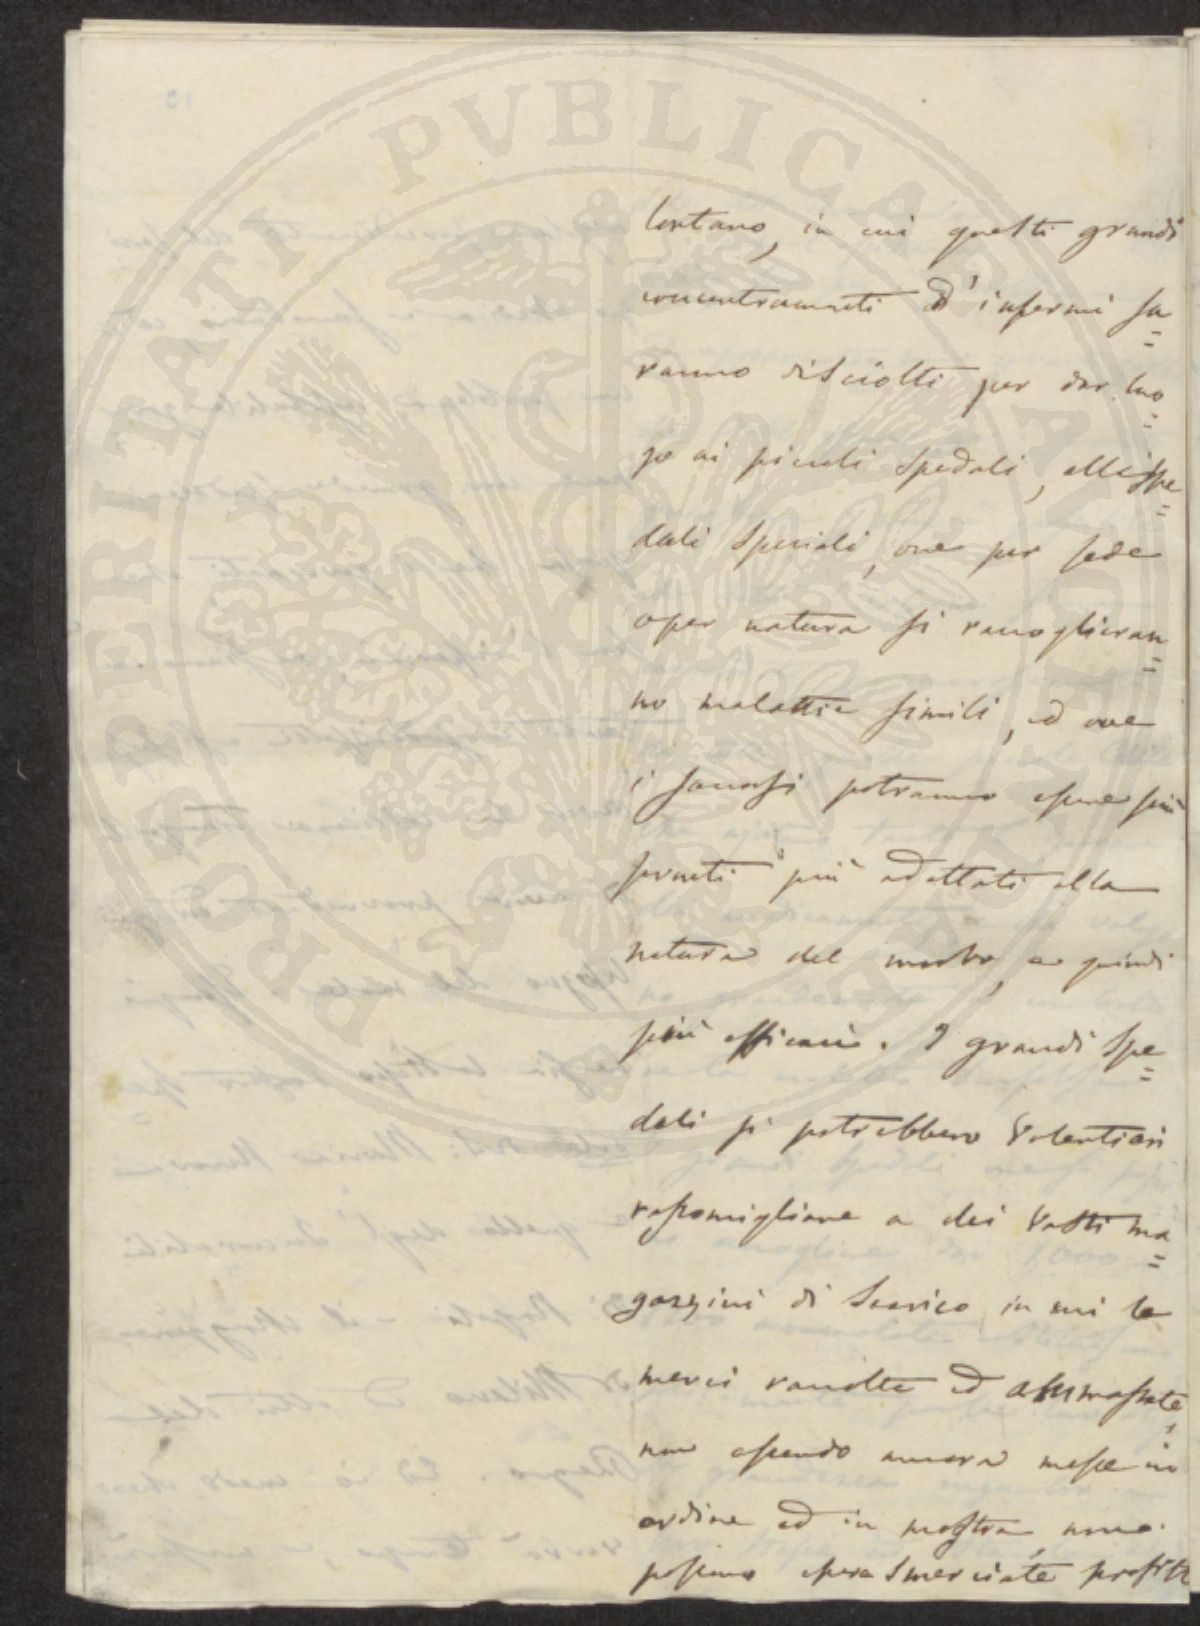 PROSPERITATI PVBLICAE AVGENDAE
lontano, in cui questi grandi
concentramenti d'infermi sa=
ranno disciolti per dar luo=
go ai piccoli spedali, alli spe=
dali speciali, ove per sede
o per natura si raccoglieran=
no malattie simili, ed ove
i soccorsi potranno essere più
pronti più adattati alla
natura del morbo, e quindi
più efficaci. I grandi spe=
dali si potrebbero volentieri
rassomigliare a dei vasti ma=
gazzini di scarico in cui le
merci raccolte ed ammassate,
non essendo ancora messe in
ordine ed in mostra, non
possono essere smerciate